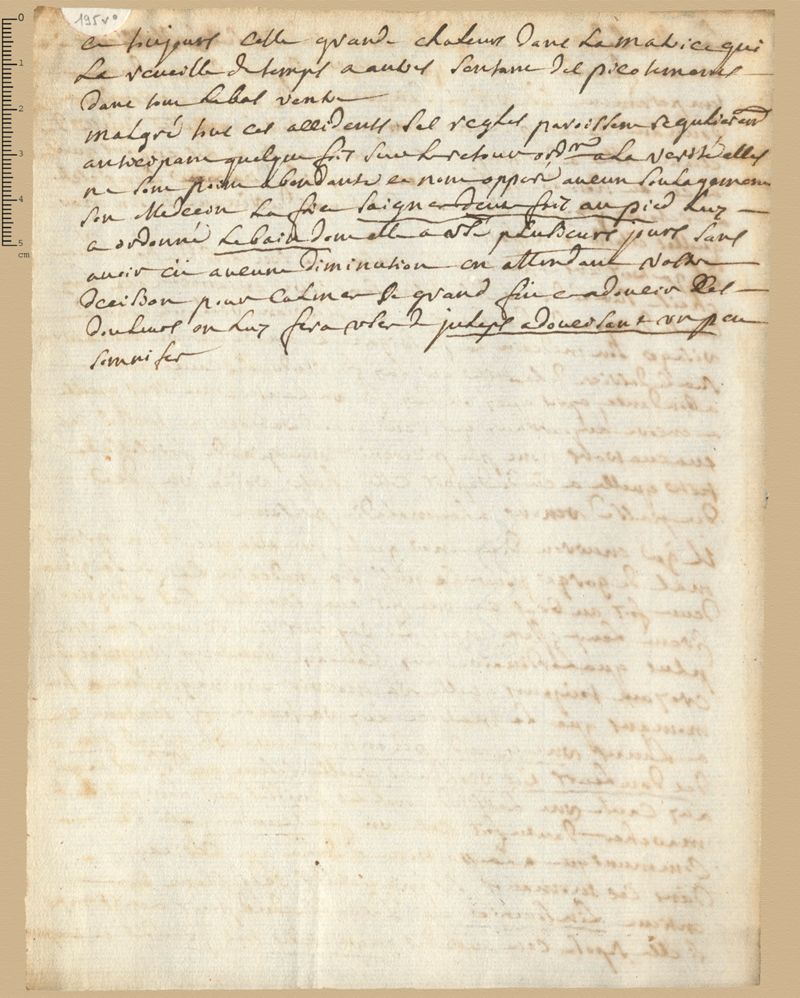 195 v°
et toujours cette grande chaleur dans la matrice qui
la reveille de temps a autres sentant des picotements
dans tout le bas ventre
malgré tous ces accidents ses regles paroissent regulierem
anticipant quelque fois sur le retour ord.re a la verité elles
ne sont point abondante et nont apporté aucun soulagement
son Medecin la fit saigner deux fois au pied luy
a ordonné le bain dont elle a usé plusieurs jours sans
avoir eu aucune diminution en attendant vostre
decision pour calmer le grand feu et adoucir les
douleurs on luy fera user de juleps adoucissant un peu
somnifer
0
1
2
3
4
5
cm